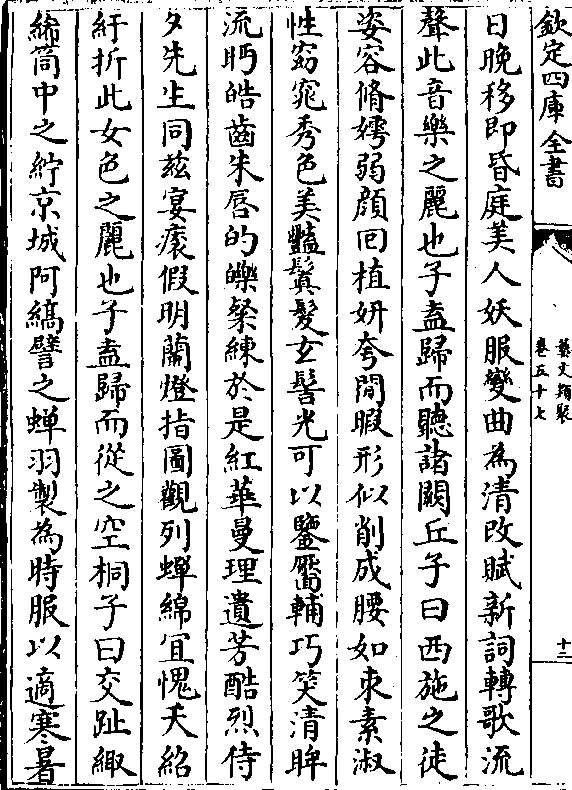 欽定四庫全書
藝文類聚
卷五十七
十二
日晚移即昏庭美人妖服變曲為清改賦新詞轉歌流
聲此音樂之麗也子盍歸而聽諸闕丘子曰西施之徒
姿容脩嫮弱顔回植妍夸閒暇形似削成腰如束素淑
性窈窕秀色美豔鬒髮玄髻光可以鑒靨輔巧笑清眸
流眄皓齒朱唇的皪粲練於是紅華曼理遺芳酷烈侍
夕先生同茲宴瘝假明蘭燈指圖觀列蟬綿宜愧夭紹
紆折此女色之麗也子盍歸而從之空桐子曰交趾緅
絺筒中之紵京城阿縞譬之蟬羽製為時服以適寒暑